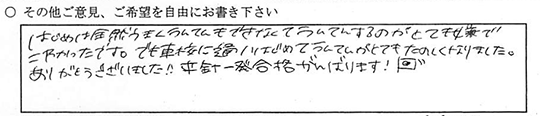 ○ その他ご意見、ご希望を自由にお書き下さい
はじめは全然うまくうんてんもできなくてうんてんするのがとても嫌で
こわかったです。でも車校に通いはじめてうんてんがとてもたのしくなりました。
ありがとうございました!! 本針一発合格がんばります!